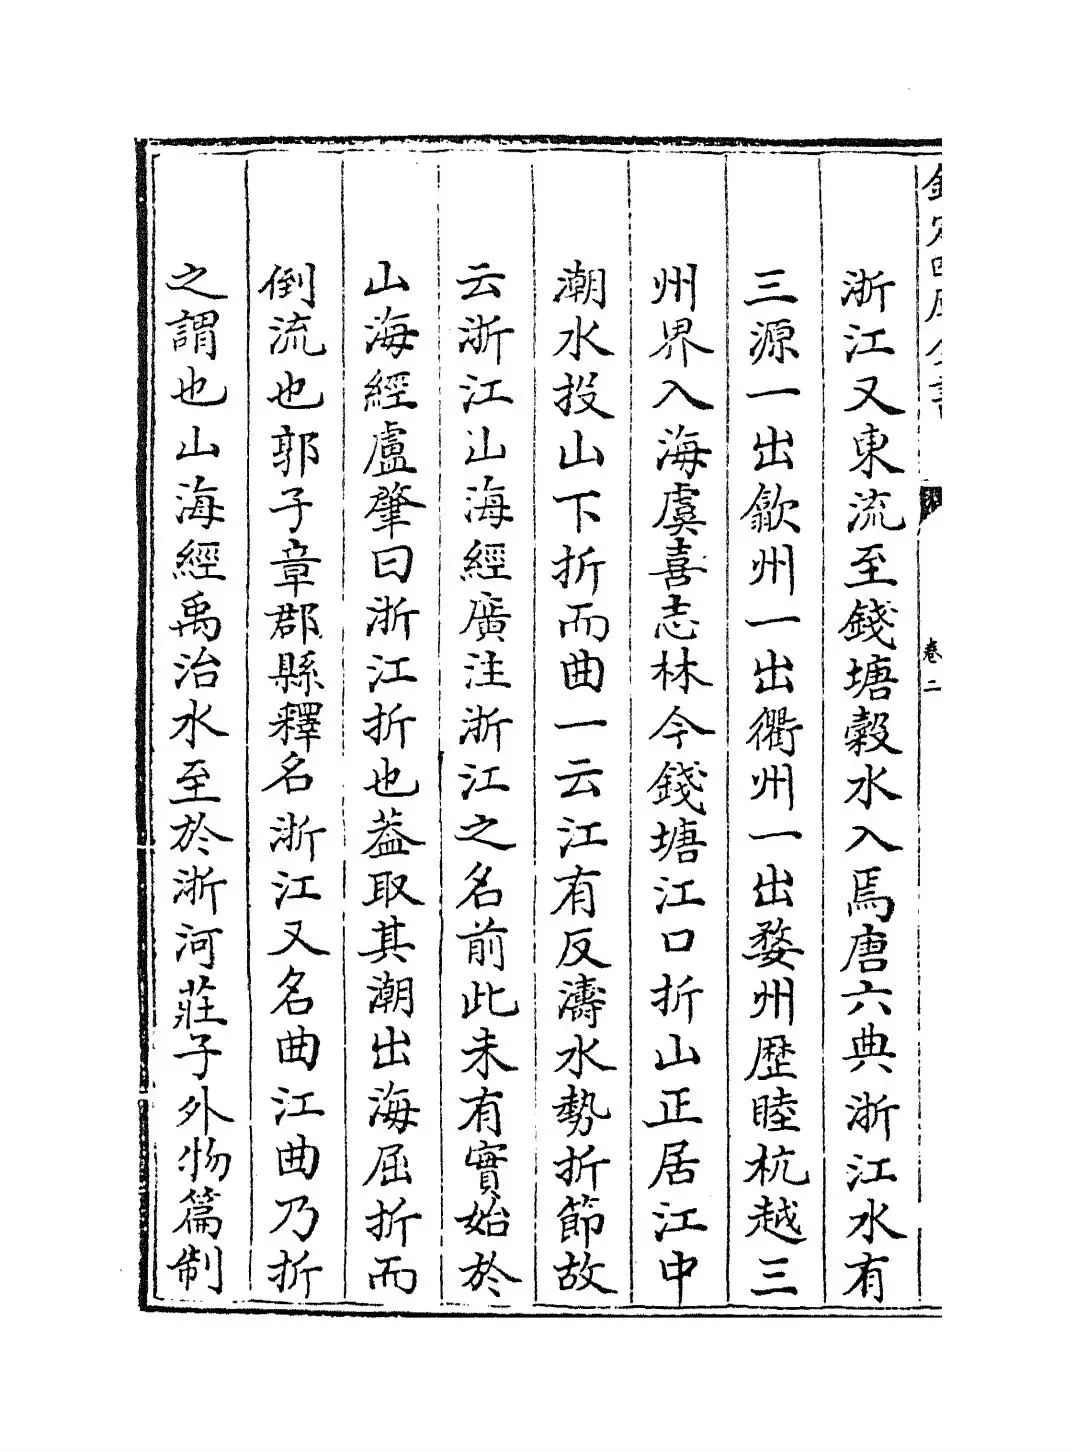 欽定四庫全書
卷二
浙江又東流至錢塘糓水入焉唐六典浙江水有
三源一出歙州一出衢州一出婺州歴睦杭越三
州界入海虞喜志林今錢塘江口折山正居江中
潮水投山下折而曲一云江有反濤水勢折節故
云浙江山海經廣注浙江之名前此未有實始於
山海經盧肇曰浙江折也葢取其潮出海屈折而
倒流也郭子章郡縣釋名浙江又名曲江曲乃折
之謂也山海經禹治水至於浙河莊子外物篇制